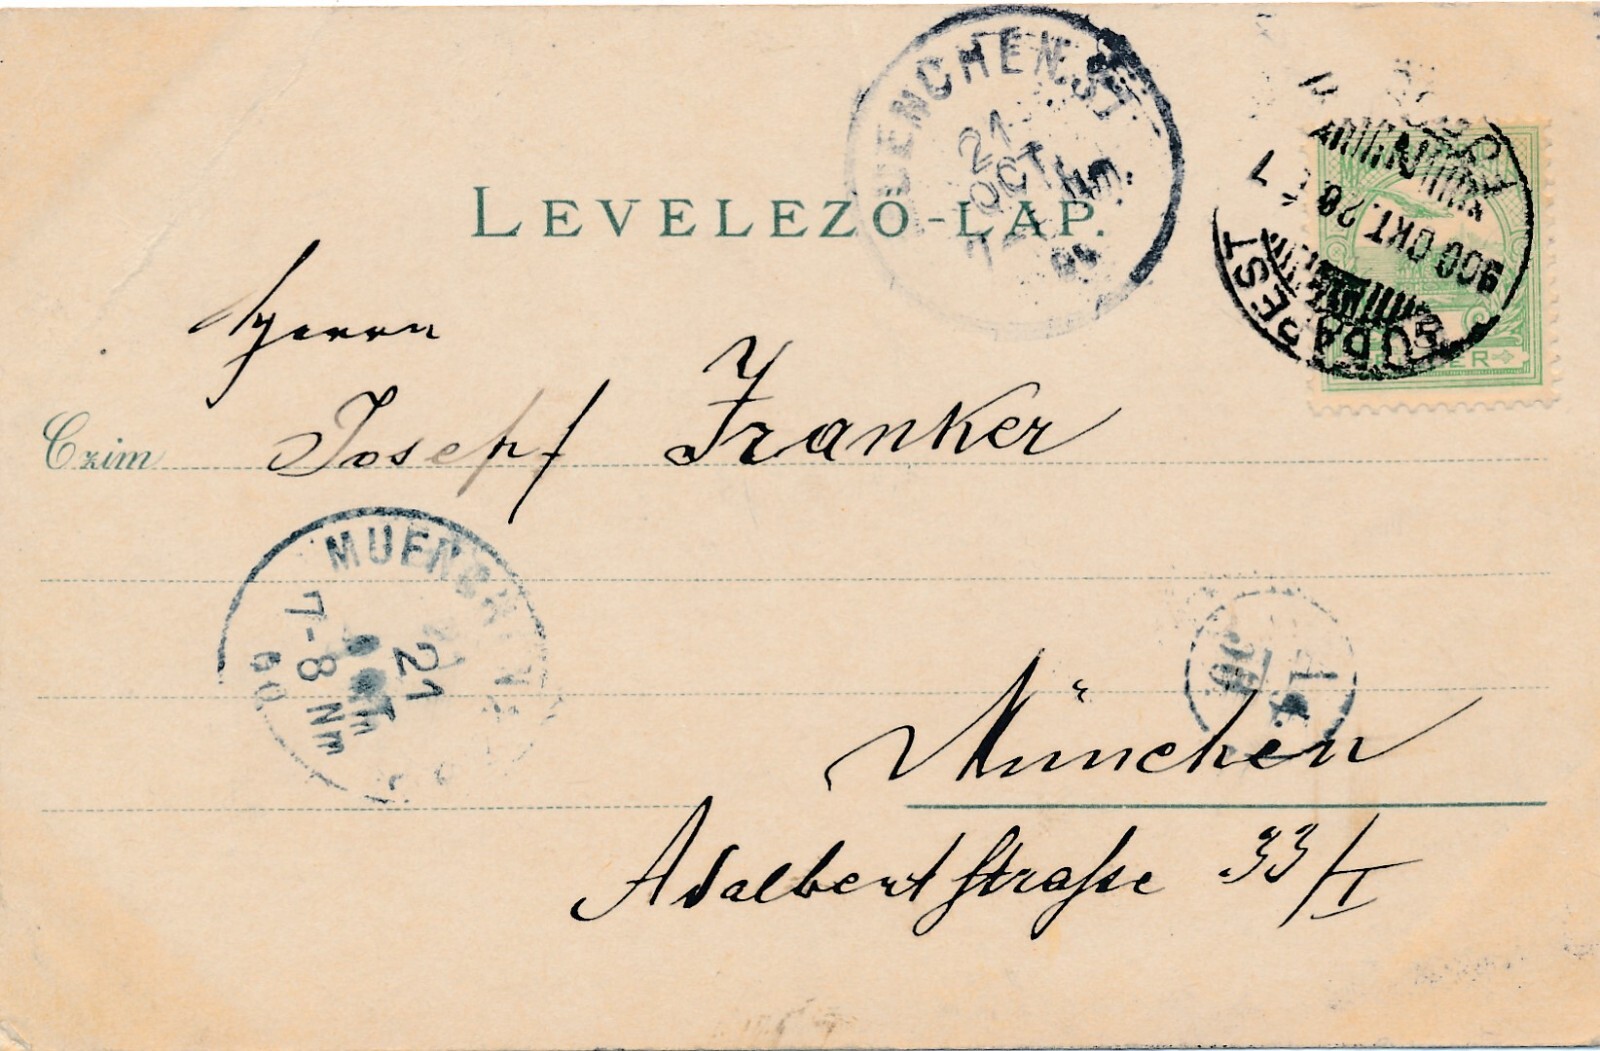 MUENCHEN.37
21
OCT.
Nm.
900 OKT. 20
BUDAPEST
LEVELEZŐ-LAP.
Herrn
Czim Josef Franker
MUENCHEN
21
OCT
7-8 Nm
00
München
Adalbertstraße 33/I